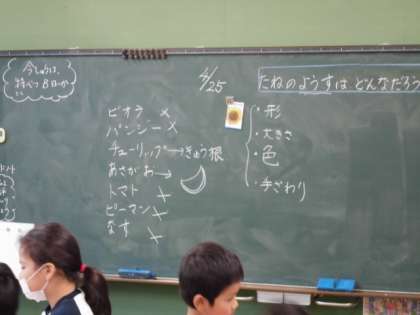 4/25
たねのようすは、どんなだろう
ビオラ ×
パンジー ×
チューリップ→きゅう根
あさがお→
トマト ×
ピーマン ×
なす ×
・形
・大きさ
・色
・手ざわり